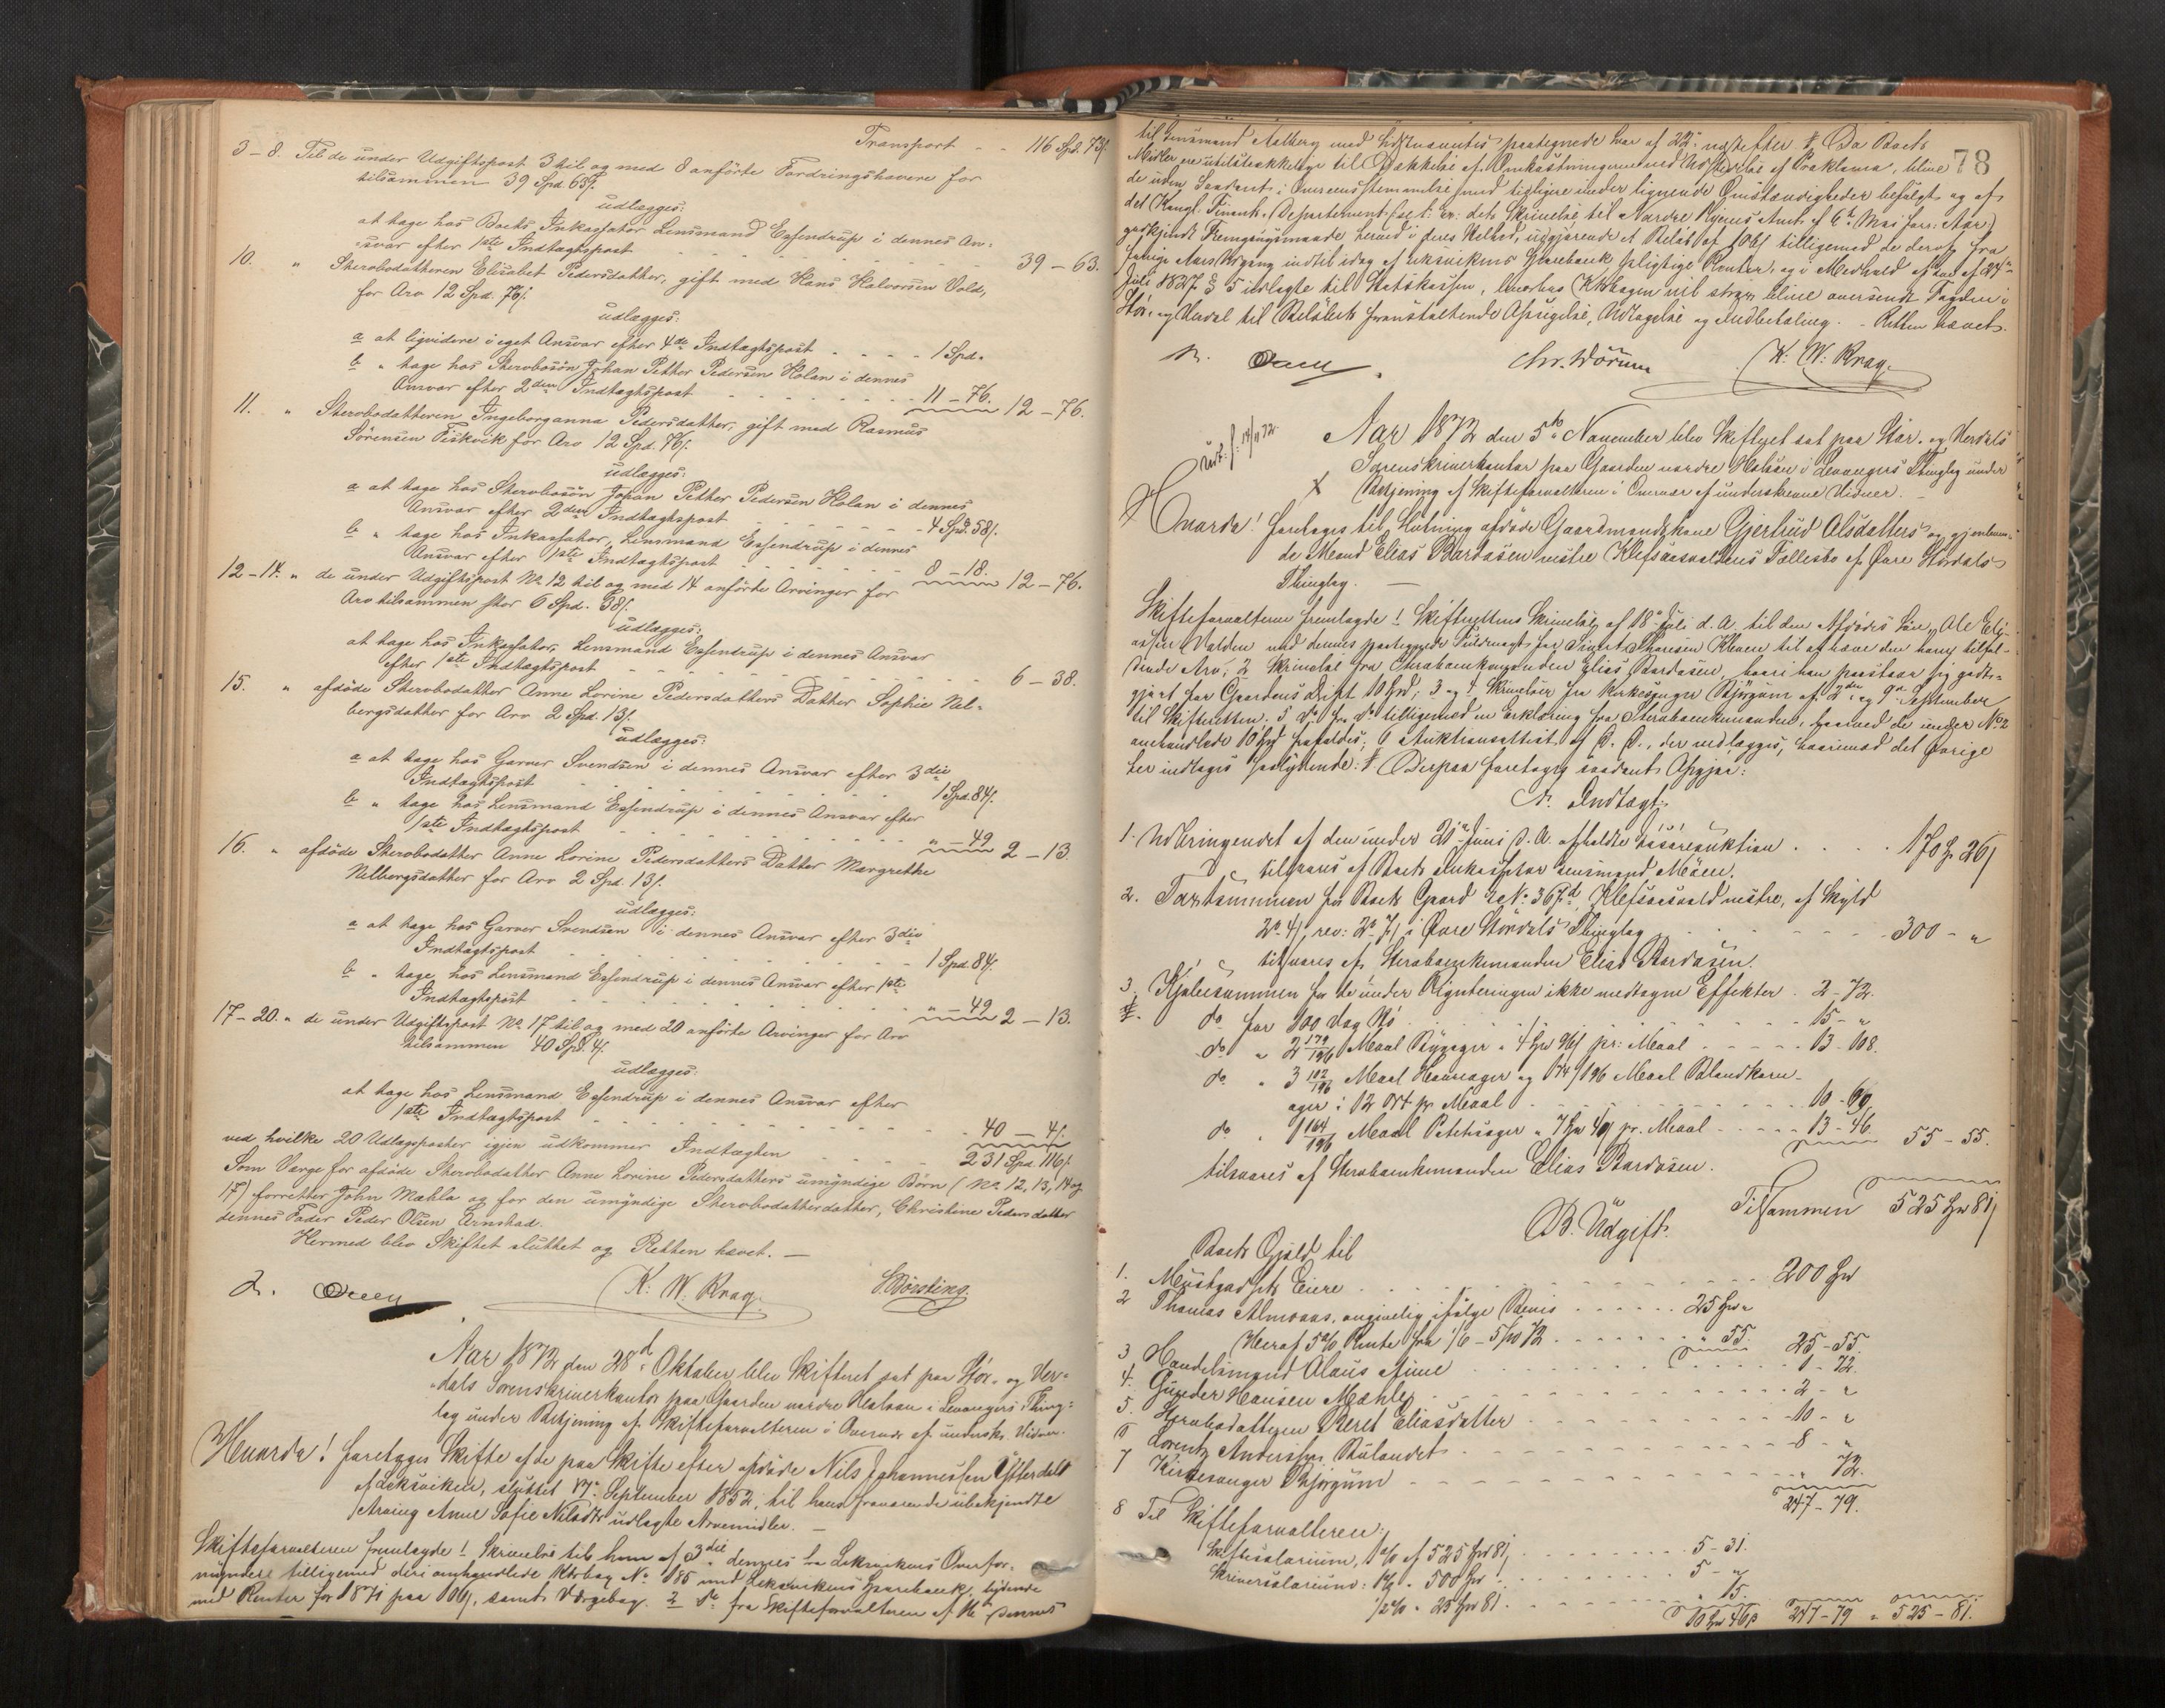 Transport - - 116 Spd. 73ſ.
3-8. Til de under Udgiftspost 3 til og med 8 anførte Fordringshavere for
tilsammen 39 Spd. 63ſ.
udlægges:
at tage hos Boets Inkassator Lensmand Essendrup i dennes An-
svar efter 1ste Indtægtspost 39-63.
10. " Sterbodatteren Elisabet Pedersdatter, gift med Hans Halvorsen Vold,
for Arv 12 Spd. 76ſ.
udlægges:
a at ligvidere i eget Ansvar efter 4de Indtægtspost 1 Spd.
b " tage hos Sterbosøn Johan Petter Pedersen Holan i dennes
Ansvar efter 2den Indtægtspost 11-76. 12-76.
11. " Sterbodatteren Ingeborganna Pedersdatter, gift med Rasmus
Sørensen Fiskvik for Arv 12 Spd. 76ſ.
udlægges:
a at tage hos Sterbosøn Johan Petter Pedersen Holan i dennes
Ansvar efter 2den Indtægtspost 4 Spd. 58ſ.
b " tage hos Inkassator, Lensmand Essendrup i dennes
Ansvar efter 1ste Indtægtspost 8-18. 12-76.
12-14. " de under Udgiftspost No 12 til og med 14 anførte Arvinger for
Arv tilsammen stor 6 Spd. 38ſ.
udlægges:
at tage hos Inkassator, Lensmand Essendrup i dennes Ansvar
efter 1ste Indtægtspost 6-38.
15. " afdøde Sterbodatter Anne Lorine Pedersdatters Datter Sophie Nel-
bergsdatter for Arv 2 Spd. 13ſ.
udlægges:
a at tage hos Garver Svendsen i dennes Ansvar efter 3die
Indtægtspost 1 Spd. 84ſ.
b " tage hos Lensmand Essendrup i dennes Ansvar efter
1ste Indtægtspost "-49 2-13.
16. " afdøde Sterbodatter Anne Lorine Pedersdatters Datter Margrethe
Nelbergsdatter for Arv 2 Spd. 13ſ.
udlægges:
a at tage hos Garver Svendsen i dennes Ansvar efter 3die
Indtægtspost 1 Spd. 84ſ.
b " tage hos Lensmand Essendrup i dennes Ansvar efter 1ste
Indtægtspost "-49 2-13.
17-20. " de under Udgiftspost No 17 til og med 20 anførte Arvinger for Arv
tilsammen 40 Spd. 4ſ.
udlægges:
at tage hos Lensmand Essendrup i dennes Ansvar efter
1ste Indtægtspost 40-4ſ.
ved hvilke 20 Udlægsposter igjen udkommer Indtægten 231 Spd. 116ſ.
Som Værge for afdøde Sterbodatter Anne Lorine Pedersdatters umyndige Børn (No 12, 13, 14 og
17) forretter John Mæhla og for den umyndige Sterbodatterdatter, Christine Pedersdatter
dennes Fader Peder Olsen Ernstad.
Hermed blev Skiftet sluttet og Retten hævet. —
K. W. Krag.
Aar 1872 den 28d Oktober blev Skifteret sat paa Stør- og Ver-
dals Sorenskriverkontor paa Gaarden nordre Halsan i Levangers Thing-
lag under Betjening af Skifteforvalteren i Overvær af undersk. Vidner.
Hvorda! foretoges Skifte af de paa Skifte efter afdøde Nils Johannessen
af Leksviken, sluttet 17de September 1852, til hans fraværende ubekjendte
Arving Anne Sofie Nilsdtr udlagte Arvemidler. —
Skifteforvalteren fremlagde 1 Skrivelse til ham af 3die dennes fra Leksvikens Overfor-
mynderi tilligemed deri omhandlede Kvbog No 185 med Leksvikens Sparebank, lydende
med Renter for 1871 paa 106ſ, samt Værgebog. 2 Do fra Skifteforvalteren af 16 dennes
78
til Lensmand Aalberg med Lidtnævntes paategnede Svar af 22 næstefter. Da Boets
Midler ere utilstrækkelige til Dækkelse af Omkostningerne ved Udstedelse af Proklama, bleve
de uden Saadant, i Overensstemmelse med tidligere under lignende Omstændigheder befulgt og af
det Kongl. Finants-Departement (sct. cr. dets Skrivelse til Nordre Bergens Amt af 6te Mai forr. Aar)
godkjendt Fremgangsmaade, herved i deres Helhed, udgjørende et Beløb af 106ſ tilligemed de deraf fra
forrige Aars Udgang indtil idag af Leksvikens Sparebank pligtige Renter, og i Medhold af Lov af 24de
Juli 1827 § 5 udlagte til Statskassen, hvorhos Kvbogen vil strax blive oversendt Fogden i
Stør- og Verdal til Beløbets foranstaltende Opsigelse, Udtagelse og Indbetaling. - Retten hævet.
Chr. Wörum K. W. Krag.
Aar 1872 den 5te November blev Skifteret sat paa Stør- og Verdals
Sorenskriverkontor paa Gaarden nordre Halsan i Levangers Thinglag under
Betjening af Skifteforvalteren i Overvær af underskrevne Vidner. —
Hvorda! foretoges til Slutning afdøde Gaardmandskone Gjertrud Olsdatters og gjenleven-
de Mand Elias Bardosen vestre Klefsaasvaldens Fællesbo af Øvre Størdals
Thinglag. —
Skifteforvalteren fremlagde 1 Skifterettens Skrivelse af 18de Juli d. A. til den Afdødes Søn, Ole Eli-
assen Valden med dennes paategnede Fuldmagt for Sivert Thoresen Kleven til at hæve den ham tilfal-
dende Arv, 2 Skrivelse fra Sterboenkemanden Elias Bardosen, hvori han paastaar sig godt-
gjort for Gaardens Drift 10 Spd; 3 og 4 Skrivelser fra Kirkesanger Bjørgum af 2den og 9de September
til Skifteretten. 5 Do fra Do tilligemed en Erklæring fra Sterboenkemanden, hvorved de under No 2
omhandlede 10 Spd frafaldes; 6 Auktionsattest af D. D., der vedlægges, hvorimod det Øvrige
her indtages saalydende: Derpaa foretoges saadant Opgjør:
A. Indtægt:
1. Udbringendet af den under 20de Juni d. A. afholdte Løsøreauktion 170 Sp. 26ſ
tilsvares af Boets Inkassator Lensmand Moen.
2. Taxtsummen for Boets Gaard Lno 367d, Klefsaasvald vestre, af Skyld
i Øvre Størdals Thinglag 300-"
tilsvares af Sterboenkemanden Elias Bardosen.
3. Kjøbesummen for de under Registeringen ikke medtagne Effekter 2-72.
do for 100 Vog Hø 15-"
do " 2 179/196 Maal Bygager a 4 Spd 96ſ pr. Maal 13-108.
do " 3 102/196 Maal Havreager og 144/196 Maal Blandkorn-
ager a 12 Ort pr. Maal 10-69
do " 1 164/196 Maal Potetesager a 7 Spd 40ſ pr. Maal 13-46. 55-55.
tilsvares af Sterboenkemanden Elias Bardosen.
Tilsammen 525 Spd 81ſ
B. Udgift.
Boets Gjæld til
1. Eiere 200 Spd
2 Thomas Almoaas, angivelig ifølge Bevis 25 Spd "
Heraf 5% Rente fra 1/6 - 5/10 72 " 55. 25-55.
3 Handelsmand Olaus 1-72.
4. Gunder Hansen Mæhle 2-"
5. Sterbodatteren Beret Eliasdatter 10-"
6 Lorentz Anderssen 8-"
7 Kirkesanger Bjørgum " 72.
247-79.
8 Til Skifteforvalteren:
Skiftesalarium, 1% af 525 Spd 81ſ 5-31.
Skriversalarium: 1% " 500 Spd 5-"
1/2% " 25 Spd 81 " 15
10 Spd 46ſ 247-79 = 525-81.